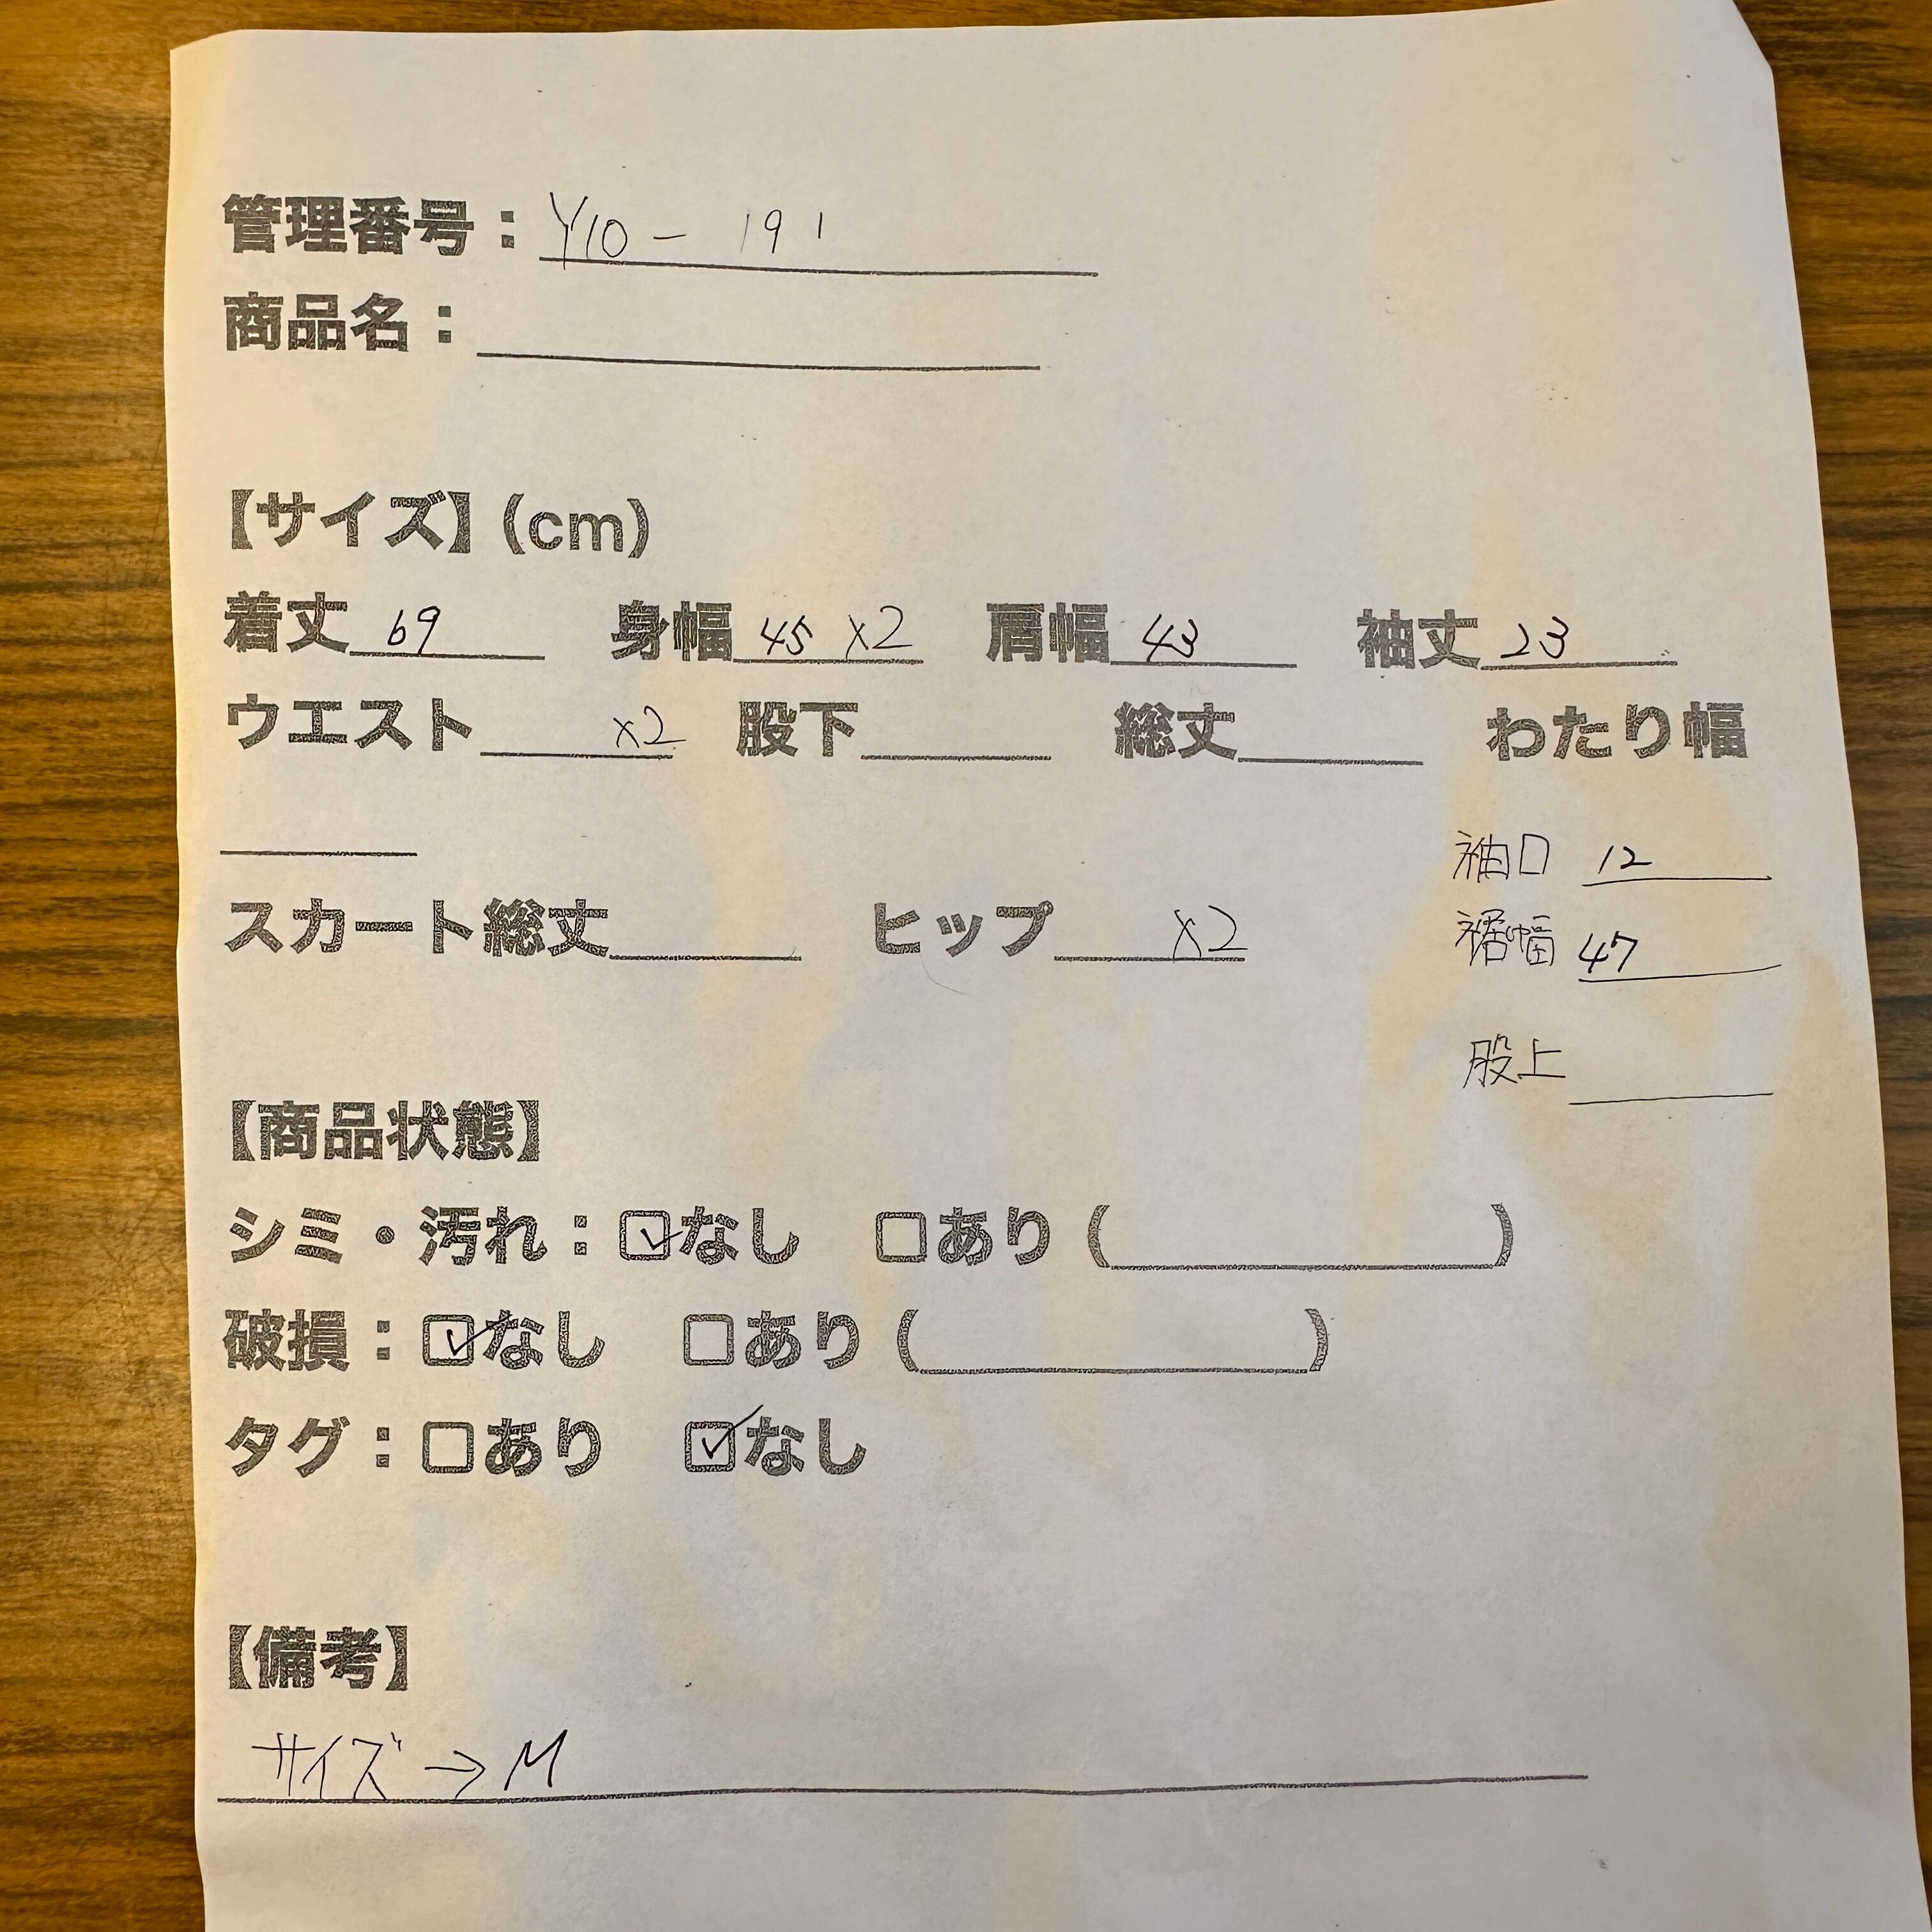 管理番号：Y10 - 191
商品名：
【サイズ】(cm)
着丈 69 身幅 45 ×2 肩幅 43 袖丈 23
ウエスト ×2 股下 総丈 わたり幅
袖口 12
スカート総丈 ヒップ ×2
裾幅 47
股上
【商品状態】
シミ・汚れ：☑なし □あり ( )
破損：☑なし □あり ( )
タグ：□あり ☑なし
【備考】
サイズ → M